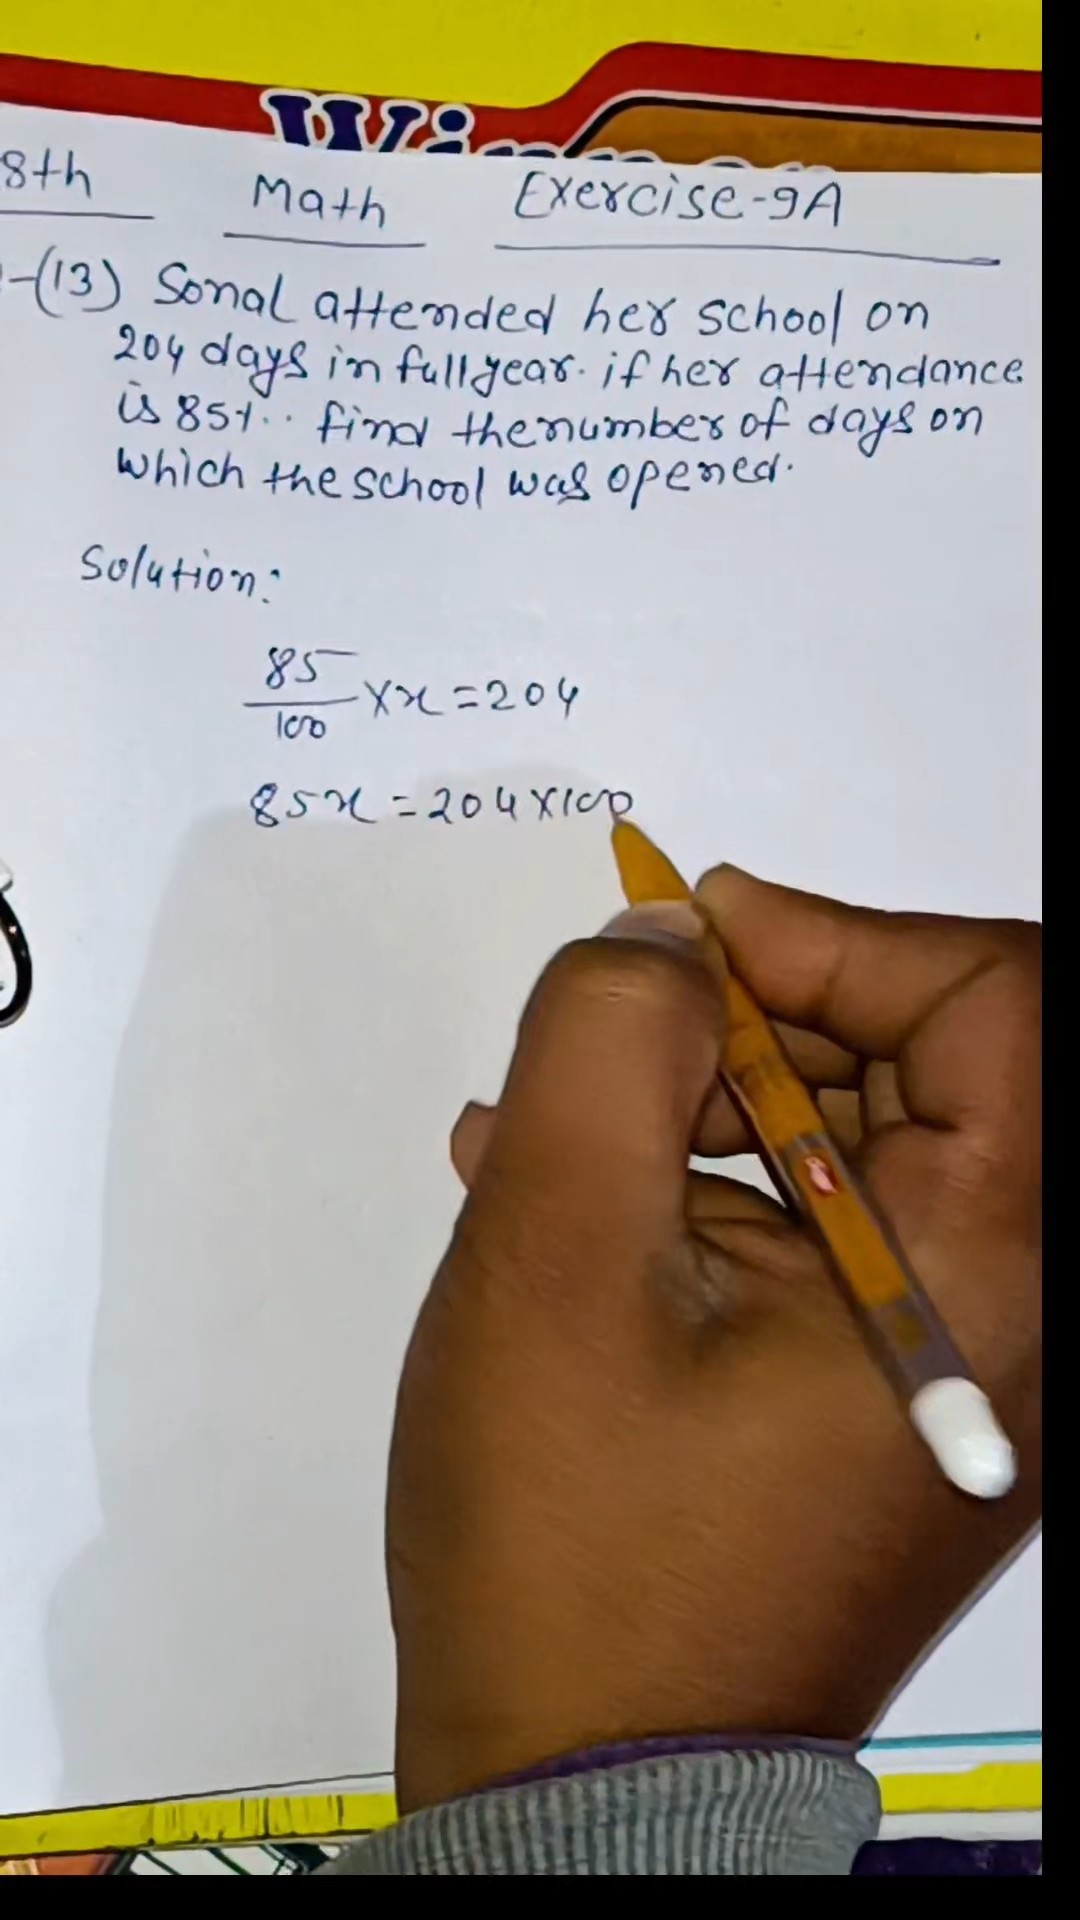 8th Math Exercise-9A
-(13) Sonal attended her school on
204 days in full year. if her attendance
is 85%. find the number of days on
which the school was opened.
Solution:
85/100 × x = 204
85x = 204 × 100